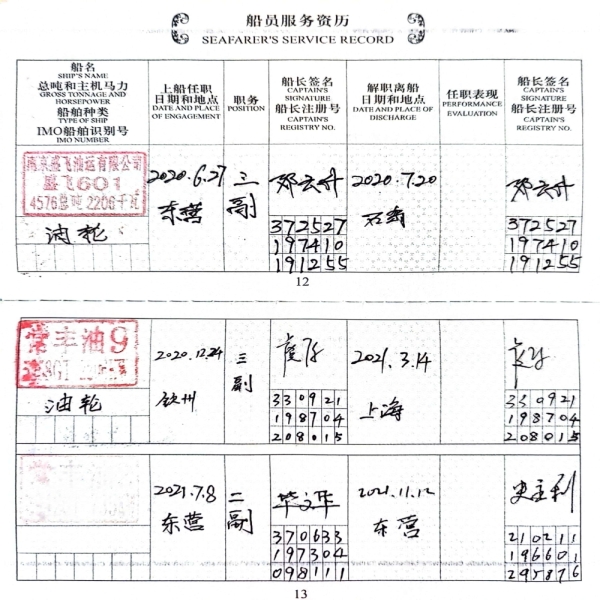 船员服务资历
SEAFARER'S SERVICE RECORD
船名
SHIP'S NAME
总吨和主机马力
GROSS TONNAGE AND
HORSEPOWER
船舶种类
TYPE OF SHIP
IMO船舶识别号
IMO NUMBER
上船任职
日期和地点
DATE AND PLACE
OF ENGAGEMENT
职务
POSITION
船长签名
CAPTAIN'S
SIGNATURE
船长注册号
CAPTAIN'S
REGISTRY NO.
解职离船
日期和地点
DATE AND PLACE OF
DISCHARGE
任职表现
PERFORMANCE
EVALUATION
船长签名
CAPTAIN'S
SIGNATURE
船长注册号
CAPTAIN'S
REGISTRY NO.
南京盛飞油运有限公司
盛飞601
4576总吨 2206千瓦
油轮
2020.6.27
东营
三副
邓云升
372527
197410
191255
2020.7.20
邓云升
372527
197410
191255
12
丰油9
油轮
2020.12.24
钦州
三副
330921
198704
208015
2021.3.14
上海
330921
198704
208015
2021.7.8
东营
二副
毕文华
370633
197304
098111
2021.11.12
东营
210211
196601
295876
13